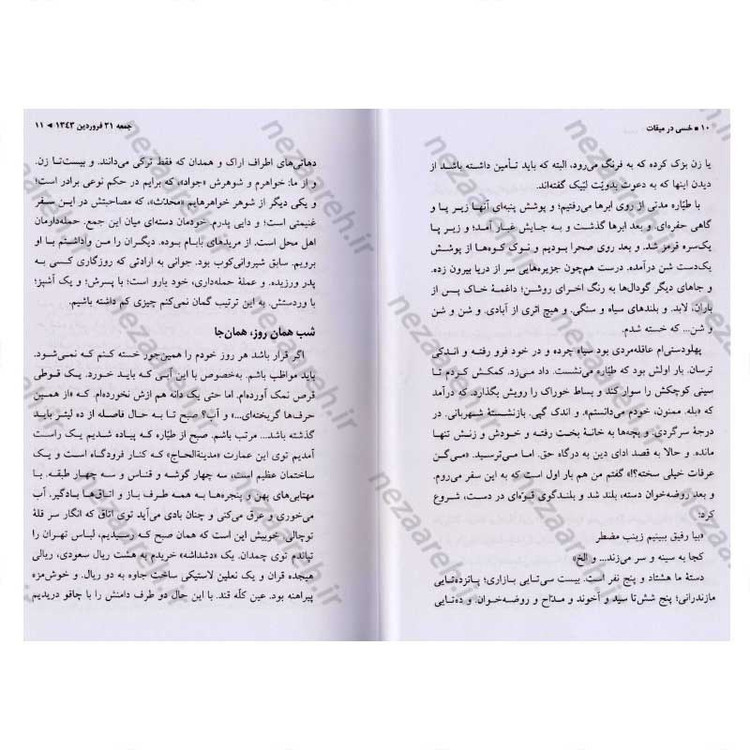 ۱۰ ■ خسی در میقات
یا زن بزک کرده که به فرنگ می‌رود. البته که باید تأمین داشته باشد از
دیدن اینها که به دعوت بدویّت لبّیک گفته‌اند.
با طیّاره مدتی از روی ابرها می‌رفتیم؛ و پوشش پنبه‌ای آنها زیر پا و
گاهی حفره‌ای. و بعد ابرها گذشت و به جایش غبار آمد؛ و زیر پا
یک‌سره قرمز شد. و بعد روی صحرا بودیم و نوک کوه‌ها از پوشش
یک‌دست شن درآمده. درست هم‌چون جزیره‌هایی سر از دریا بیرون زده.
و جاهای دیگر گودال‌ها به رنگ اخرای روشن؛ داغمهٔ خاک پس از
باران، لابد. و بلندهای سیاه و سنگی. و هیچ اثری از آبادی. و شن و شن
و شن... که خسته شدم.
پهلودستی‌ام عاقله‌مردی بود سیاه چرده و در خود فرو رفته و اندکی
ترسان. بار اولش بود که طیّاره می‌نشست. داد می‌زد. کمکش کردم تا
سینی کوچکش را سوار کند و بساط خوراک را رویش بگذارد. که درآمد
که «بله. ممنون، خودم می‌دانستم». و اندک گپی. بازنشستهٔ شهربانی. در
درجهٔ سرگردی. و بچه‌ها به خانهٔ بخت رفته و خودش و زنش تنها
مانده. و حالا به قصد ادای دین به درگاه حق. اما می‌ترسید. «می‌گن
عرفات خیلی سخته؟!» گفتم من هم بار اول است که به این سفر می‌روم.
و بعد روضه‌خوان دسته، بلند شد و بلندگوی قوّه‌ای در دست، شروع
کرد:
«بیا رفیق ببینیم زینب مضطر
کجا به سینه و سر می‌زند... و الخ»
دستهٔ ما هشتاد و پنج نفر است. بیست سی‌تایی بازاری؛ پانزده‌تایی
مازندرانی؛ پنج شش‌تا سید و آخوند و مدّاح و روضه‌خوان. و ده‌تایی
جمعه ۲۱ فروردین ۱۳۴۳ ◄ ۱۱
دهاتی‌های اطراف اراک و همدان که فقط ترکی می‌دانند. و بیست‌تا زن.
و از ما: خواهرم و شوهرش «جواد»، که برایم در حکم نوعی برادر است؛
و یکی دیگر از شوهر خواهرهایم «محدّث»، که مصاحبتش در این سفر
غنیمتی است؛ و دایی پدرم. خودمان دسته‌ای میان این جمع. حمله‌دارمان
اهل محل است. از مریدهای بابام بوده. دیگران را من واداشتم با او
برویم. سابق شیروانی‌کوب بود. جوانی به ارادتی که روزگاری کسی به
پدر ورزیده. و عملهٔ حمله‌داری، خود یارو است؛ با پسرش؛ و یک آشپز؛
با وردستش. به این ترتیب گمان نمی‌کنم چیزی کم داشته باشیم.
شب همان روز، همان‌جا
اگر قرار باشد هر روز خودم را همین‌جور خسته کنم که نمی‌شود.
باید مواظب باشم. به‌خصوص با این آبی که باید خورد. یک قوطی
قرص نمک آورده‌ام. اما حتی یک دانه هم ازش نخورده‌ام. که «از همین
حرف‌ها گریخته‌ای...» و آب؟ صبح تا به حال فاصله از ده لیتر باید
گذشته باشد... مرتب باشم. صبح از طیّاره که پیاده شدیم یک راست
آمدیم توی این عمارت «مدینةالحاج» که کنار فرودگاه است و یک
ساختمان عظیم است، سه چهار گوشه و قناس و سه چهار طبقه. با
مهتابی‌های پهن و پنجره‌ها به همه طرف باز و اتاق‌ها بادگیر. آب
می‌خوری و عرق می‌کنی و چنان بادی می‌آید توی اتاق که انگار سر قلهٔ
توچالی. خوبیش این است که همان صبح که رسیدیم، لباس تهران را
تپاندم توی چمدان. یک «دشداشه» خریدم به هشت ریال سعودی، ریالی
هیجده قران و یک نعلین لاستیکی ساخت جاوه به دو ریال. و خوش‌مزه
پیراهنه بود. عین کلّه قند. با این حال دو طرف دامنش را با چاقو دریدیم
nezaareh.ir